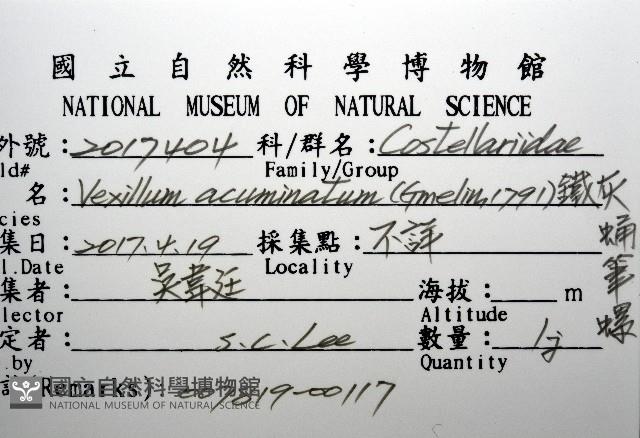 國立自然科學博物館
NATIONAL MUSEUM OF NATURAL SCIENCE
外號：2017404 科/群名：Costellariidae
ld# Family/Group
名：Vexillum acuminatum (Gmelin, 1791) 鐵灰蛹筆螺
cies
集日：2017.4.19 採集點：不詳
l.Date Locality
集者：吳韋廷 海拔：m
llector Altitude
定者：S.C. Lee 數量：1
.by Quantity
(Remarks) 19-00117
國立自然科學博物館
NATIONAL MUSEUM OF NATURAL SCIENCE